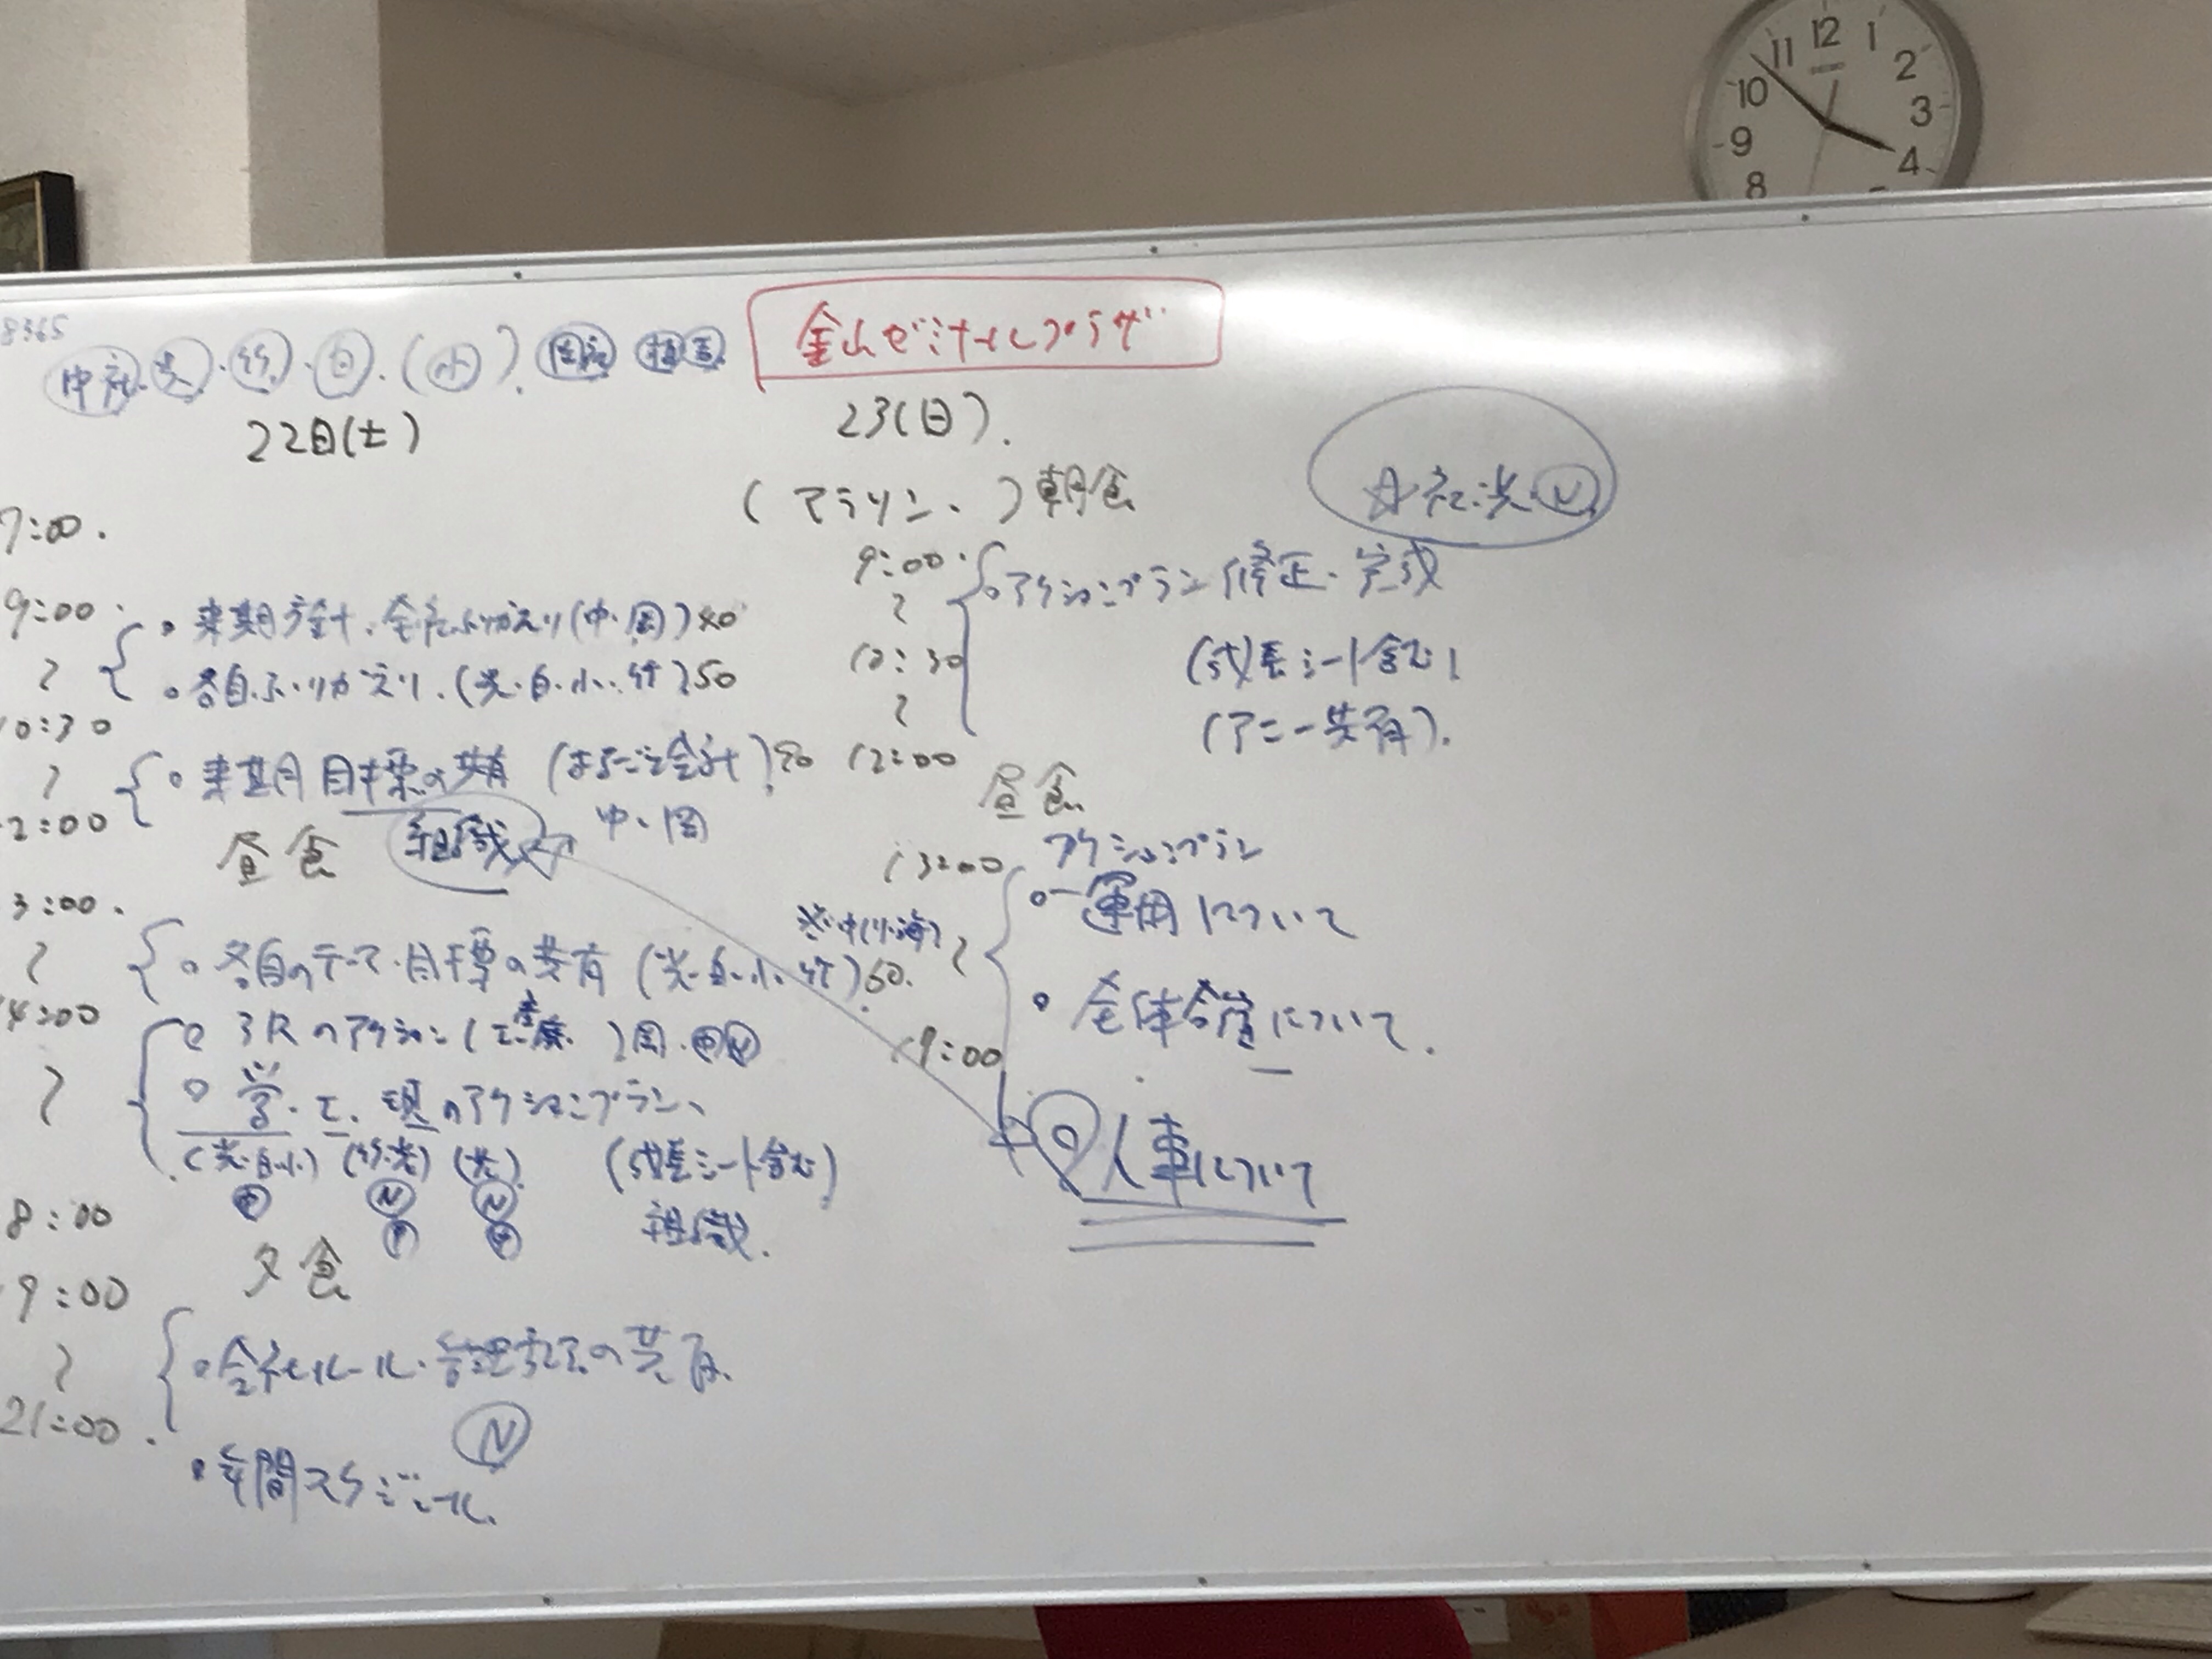 8365
中社・光・竹・白・(小)・
金山ゼミナールプラザ
22日(土)
7:00.
9:00.
〜
・来期方針、全社ふりかえり(中・周)40
・各自ふりかえり、(光・白・小・竹)50
0:30
〜
・来期目標の共有(まるごと会計)90
中、周
組織
2:00
昼食
3:00.
〜
・各自のテーマ・目標の共有(光・白・小・竹)60.
4:00
〜
・3Rのアクション(工
)周・中N
・学・工・現のアクションプラン、
(光・白・小)(竹・光)(光)
(成長シート含む)
中 N N
中 中
組織.
8:00
夕食
9:00
〜
・会社ルール・管理の共有.
N
21:00.
・年間スケジュール.
23(日).
(マラソン、)朝食
9:00.
〜
10:30
〜
・アクションプラン修正・完成
(成長シート含む)
(アニー共有).
12:00
昼食
13:00
アクションプラン
〜
・運用について
・全体会議について.
19:00
・人事について
☆社・光・N